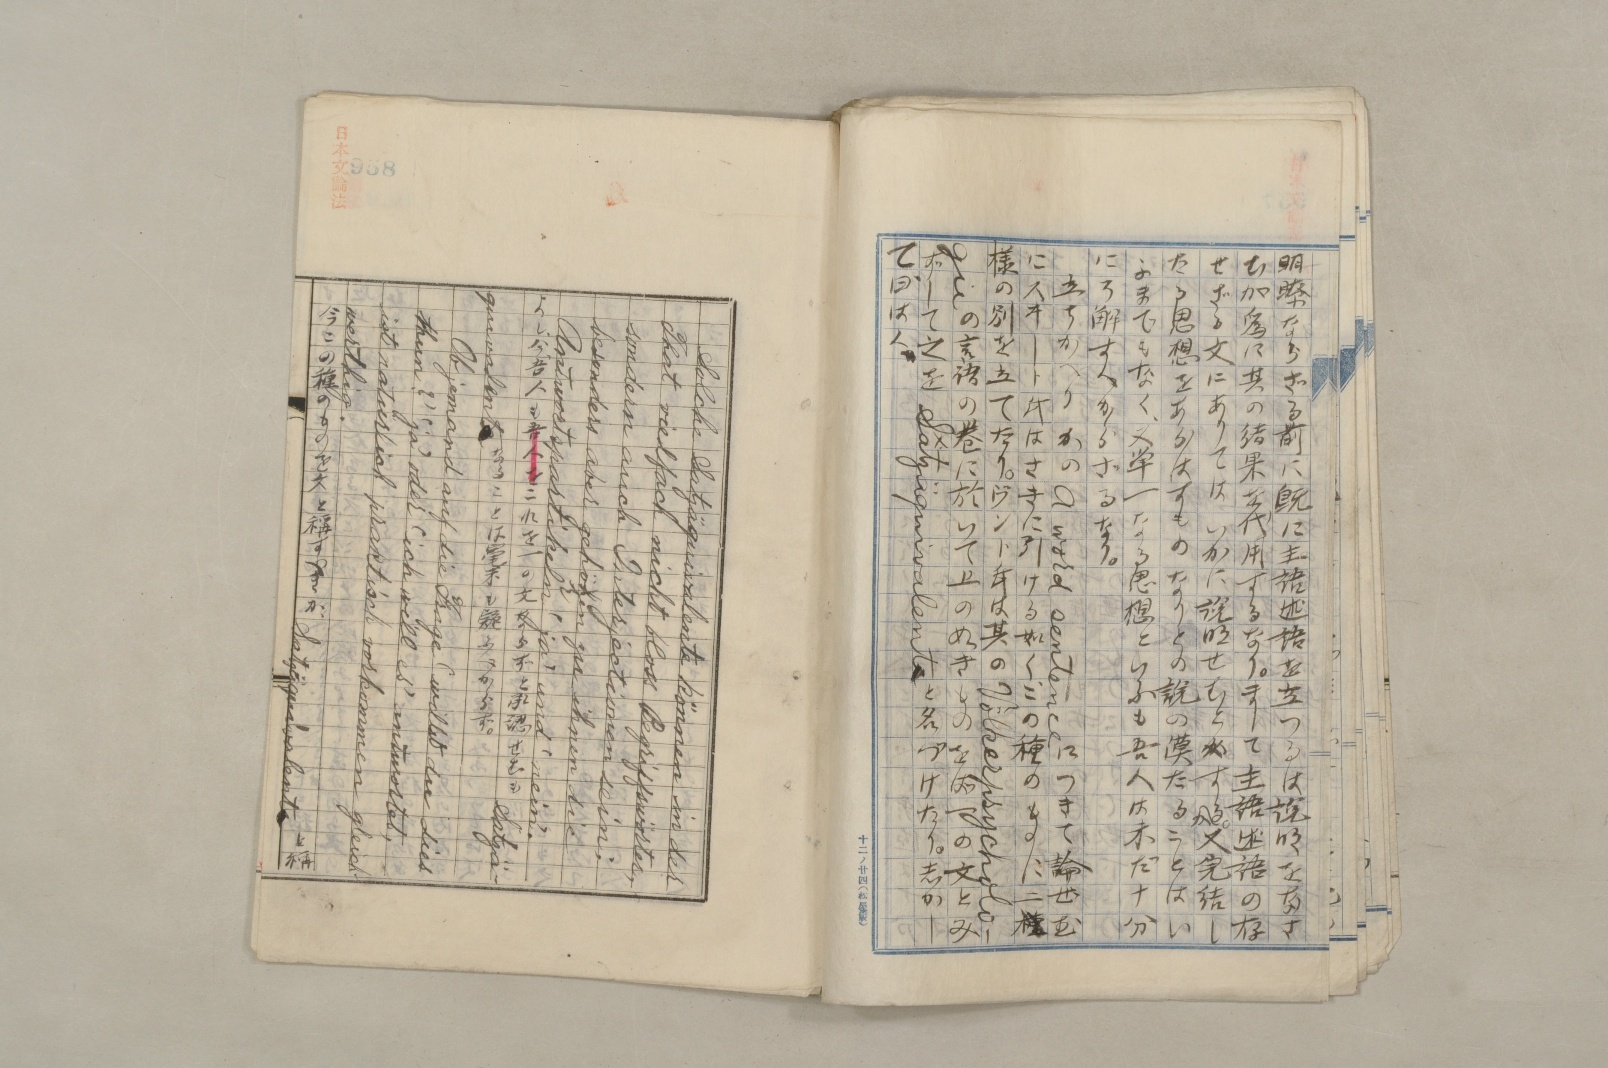 明瞭ならざる前に既に主語述語を立つるは説明をなさ
むが為に其の結果を代用するなり。まして主語述語の存
せざる文にありてはいかに説明せむとする。又完結し
たる思想をあらはすものなりとの説の漠たることはい
ふまでもなく、又単一なる思想といふも吾人は未だ十分
に了解すべからざるなり。
立ちかへりかの a word sentence につきて論せむ
にスキート氏はさきに引ける如くこの種のものに二種
様の別を立てたり。ヴント氏は其の Völkerpsycholo-
gie の言語の巻に於いて上の如きものを以ての文とみ
ずして之を Satzäquivalente と名づけたり。志かし
て曰はく
Solche Satzäquivalente können in der
That vielfach nicht bloss Begriffswörter,
sondern auch Interjectionen sein;
besonders aber gehören zu ihnen die
Antwortpartikeln „ja“ und „nein“.
よぶ吾人が吾人はこれを一の文ならずと承認せむも Satzä-
quivalente なることは毫末も疑ふべからず。
Ob jemand auf die Frage (willst du dies
thun?) „ja“ oder (ich will's) antwortet,
ist natürlich practisch vorkommen gleich-
werthig.
今この種のものを文と称すが Satzäquivalente と称
日本文論法
958
十二ノ廿四(松屋製)